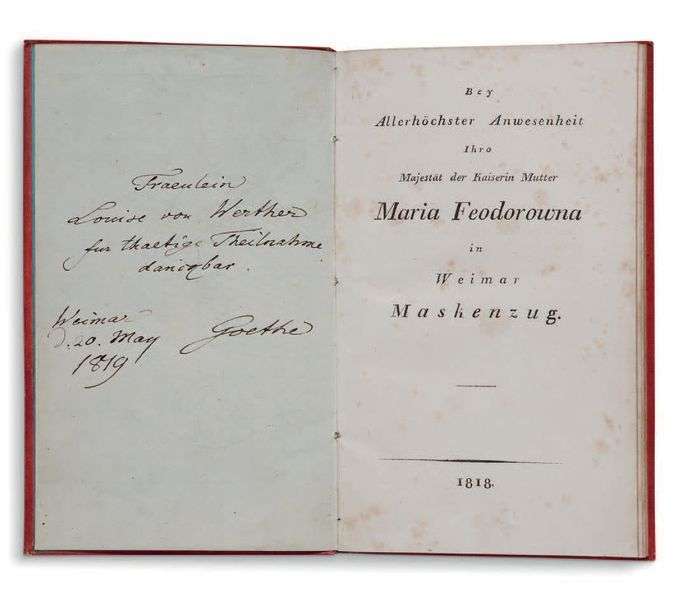 Fraeulein
Louise von Werther
fur thaetige Theilnahme
dancqbar.
Weimar
d. 20. May
1819
Goethe
Bey
Allerhöchster Anwesenheit
Ihro
Majestät der Kaiserin Mutter
Maria Feodorowna
in
Weimar
Maskenzug.
1818.